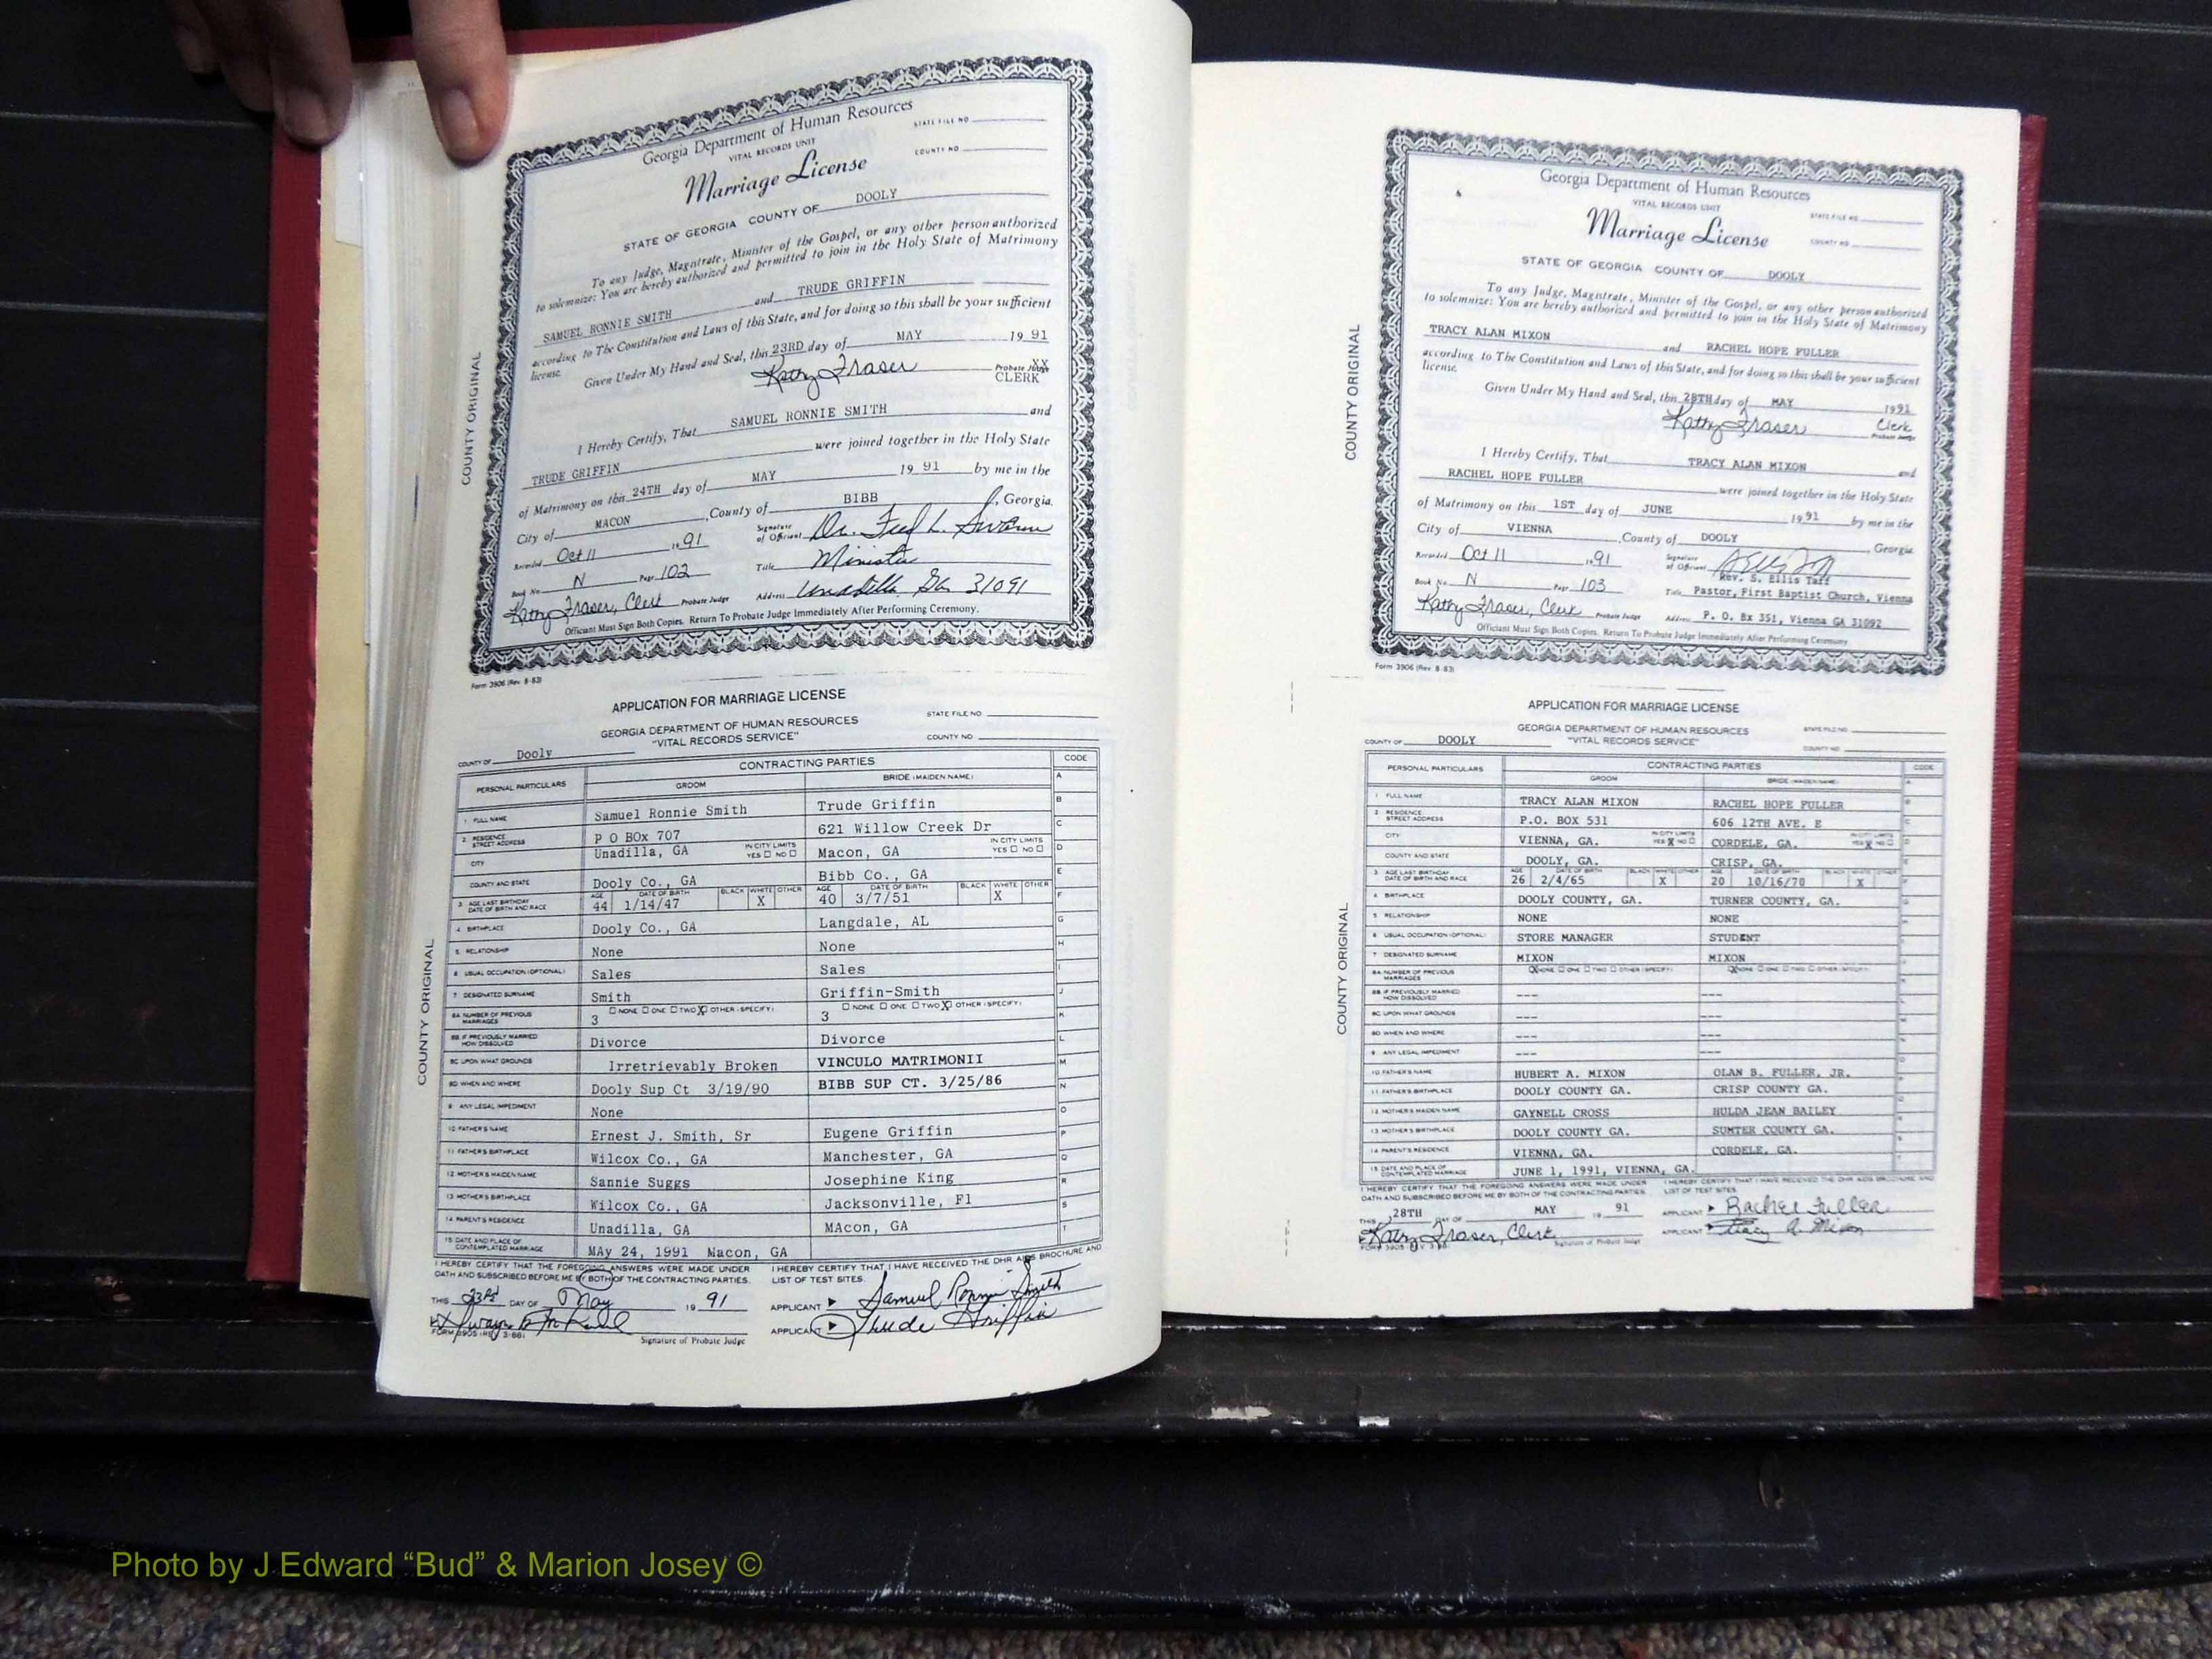 Georgia Department of Human Resources
VITAL RECORDS UNIT
STATE FILE NO
COUNTY NO
Marriage License
STATE OF GEORGIA COUNTY OF DOOLY
To any Judge, Magistrate, Minister of the Gospel, or any other person authorized
to solemnize: You are hereby authorized and permitted to join in the Holy State of Matrimony
SAMUEL RONNIE SMITH and TRUDE GRIFFIN
according to The Constitution and Laws of this State, and for doing so this shall be your sufficient
license.
Given Under My Hand and Seal, this 23RD day of MAY 19 91
Kathy Fraser
XX
Probate Judge
CLERK
I Hereby Certify, That SAMUEL RONNIE SMITH and
TRUDE GRIFFIN were joined together in the Holy State
of Matrimony on this 24TH day of MAY 19 91 by me in the
City of MACON, County of BIBB, Georgia.
Recorded Oct 11 1991 Signature of Official Dr. Fred L.
Book No. N Page 102 Title Minister
Kathy Fraser, Clerk Probate Judge Address Unadilla Ga 31091
Officiant Must Sign Both Copies. Return To Probate Judge Immediately After Performing Ceremony.
COUNTY ORIGINAL
Form 3906 (Rev. 8-83)
APPLICATION FOR MARRIAGE LICENSE
GEORGIA DEPARTMENT OF HUMAN RESOURCES
"VITAL RECORDS SERVICE"
STATE FILE NO
COUNTY NO
COUNTY OF Dooly
PERSONAL PARTICULARS CONTRACTING PARTIES CODE
GROOM BRIDE (MAIDEN NAME) A
1 FULL NAME Samuel Ronnie Smith Trude Griffin B
2 RESIDENCE STREET ADDRESS P O BOx 707 621 Willow Creek Dr C
CITY Unadilla, GA IN CITY LIMITS YES NO Macon, GA IN CITY LIMITS YES NO D
COUNTY AND STATE Dooly Co., GA Bibb Co., GA E
3 AGE LAST BIRTHDAY DATE OF BIRTH AND RACE AGE 44 DATE OF BIRTH 1/14/47 BLACK WHITE X OTHER AGE 40 DATE OF BIRTH 3/7/51 BLACK WHITE X OTHER F
4 BIRTHPLACE Dooly Co., GA Langdale, AL G
5 RELATIONSHIP None None H
6 USUAL OCCUPATION (OPTIONAL) Sales Sales I
7 DESIGNATED SURNAME Smith Griffin-Smith J
8A NUMBER OF PREVIOUS MARRIAGES 3 NONE ONE TWO X OTHER (SPECIFY) 3 NONE ONE TWO X OTHER (SPECIFY) K
8B IF PREVIOUSLY MARRIED HOW DISSOLVED Divorce Divorce L
8C UPON WHAT GROUNDS Irretrievably Broken VINCULO MATRIMONII M
8D WHEN AND WHERE Dooly Sup Ct 3/19/90 BIBB SUP CT. 3/25/86 N
9 ANY LEGAL IMPEDIMENT None O
10 FATHER'S NAME Ernest J. Smith, Sr Eugene Griffin P
11 FATHER'S BIRTHPLACE Wilcox Co., GA Manchester, GA Q
12 MOTHER'S MAIDEN NAME Sannie Suggs Josephine King R
13 MOTHER'S BIRTHPLACE Wilcox Co., GA Jacksonville, Fl S
14 PARENT'S RESIDENCE Unadilla, GA MAcon, GA T
15 DATE AND PLACE OF CONTEMPLATED MARRIAGE MAy 24, 1991 Macon, GA
I HEREBY CERTIFY THAT THE FOREGOING ANSWERS WERE MADE UNDER
OATH AND SUBSCRIBED BEFORE ME BY BOTH OF THE CONTRACTING PARTIES.
I HEREBY CERTIFY THAT I HAVE RECEIVED THE DHR AIDS BROCHURE AND
LIST OF TEST SITES.
THIS 23rd DAY OF May 19 91
APPLICANT Samuel Ronnie Smith
APPLICANT Trude Griffin
FORM 3905 (REV 3-88)
Signature of Probate Judge
COUNTY ORIGINAL
Georgia Department of Human Resources
VITAL RECORDS UNIT
STATE FILE NO
COUNTY NO
Marriage License
STATE OF GEORGIA COUNTY OF DOOLY
To any Judge, Magistrate, Minister of the Gospel, or any other person authorized
to solemnize: You are hereby authorized and permitted to join in the Holy State of Matrimony
TRACY ALAN MIXON and RACHEL HOPE FULLER
according to The Constitution and Laws of this State, and for doing so this shall be your sufficient
license.
Given Under My Hand and Seal, this 28TH day of MAY 1991
Kathy Fraser Clerk
Probate Judge
I Hereby Certify, That TRACY ALAN MIXON and
RACHEL HOPE FULLER were joined together in the Holy State
of Matrimony on this 1ST day of JUNE 1991 by me in the
City of VIENNA, County of DOOLY, Georgia
Recorded Oct 11 1991 Signature of Official
Rev. S. Ellis Taff
Book No. N Page 103 Title Pastor, First Baptist Church, Vienna
Kathy Fraser, Clerk Probate Judge Address P. O. Bx 351, Vienna GA 31092
Officiant Must Sign Both Copies. Return To Probate Judge Immediately After Performing Ceremony
COUNTY ORIGINAL
Form 3906 (Rev. 8-83)
APPLICATION FOR MARRIAGE LICENSE
GEORGIA DEPARTMENT OF HUMAN RESOURCES
"VITAL RECORDS SERVICE"
STATE FILE NO
COUNTY NO
COUNTY OF DOOLY
PERSONAL PARTICULARS CONTRACTING PARTIES CODE
GROOM BRIDE (MAIDEN NAME)
1 FULL NAME TRACY ALAN MIXON RACHEL HOPE FULLER
2 RESIDENCE STREET ADDRESS P.O. BOX 531 606 12TH AVE. E
CITY VIENNA, GA. IN CITY LIMITS YES X NO CORDELE, GA. IN CITY LIMITS YES X NO
COUNTY AND STATE DOOLY, GA. CRISP, GA.
3 AGE LAST BIRTHDAY DATE OF BIRTH AND RACE AGE 26 DATE OF BIRTH 2/4/65 BLACK WHITE X OTHER AGE 20 DATE OF BIRTH 10/16/70 BLACK WHITE X OTHER
4 BIRTHPLACE DOOLY COUNTY, GA. TURNER COUNTY, GA.
5 RELATIONSHIP NONE NONE
6 USUAL OCCUPATION (OPTIONAL) STORE MANAGER STUDENT
7 DESIGNATED SURNAME MIXON MIXON
8A NUMBER OF PREVIOUS MARRIAGES X NONE ONE TWO OTHER (SPECIFY) X NONE ONE TWO OTHER (SPECIFY)
8B IF PREVIOUSLY MARRIED HOW DISSOLVED --- ---
8C UPON WHAT GROUNDS --- ---
8D WHEN AND WHERE --- ---
9 ANY LEGAL IMPEDIMENT --- ---
10 FATHER'S NAME HUBERT A. MIXON OLAN B. FULLER, JR.
11 FATHER'S BIRTHPLACE DOOLY COUNTY GA. CRISP COUNTY GA.
12 MOTHER'S MAIDEN NAME GAYNELL CROSS HULDA JEAN BAILEY
13 MOTHER'S BIRTHPLACE DOOLY COUNTY GA. SUMTER COUNTY GA.
14 PARENT'S RESIDENCE VIENNA, GA. CORDELE, GA.
15 DATE AND PLACE OF CONTEMPLATED MARRIAGE JUNE 1, 1991, VIENNA, GA.
I HEREBY CERTIFY THAT THE FOREGOING ANSWERS WERE MADE UNDER
OATH AND SUBSCRIBED BEFORE ME BY BOTH OF THE CONTRACTING PARTIES.
I HEREBY CERTIFY THAT I HAVE RECEIVED THE DHR AIDS BROCHURE AND
LIST OF TEST SITES
THIS 28TH DAY OF MAY 19 91
APPLICANT Rachel Fuller
Kathy Fraser, Clerk
APPLICANT Tracy A. Mixon
Signature of Probate Judge
COUNTY ORIGINAL
Photo by J Edward “Bud” & Marion Josey ©